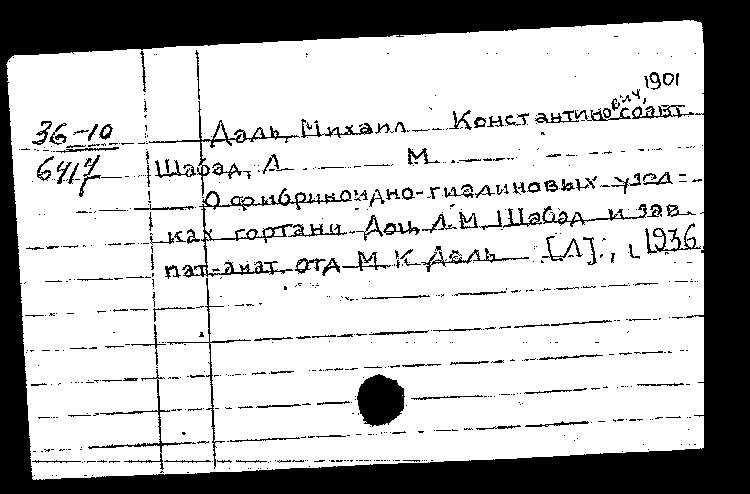 36-10
6417
Даль, Михаил Константинович, 1901 соавт
Шабад, Л М
О фибриноидно-гиалиновых узел-
ках гортани Доц Л.М. Шабад и зав
пат-анат отд М К Даль [Л]., 1936